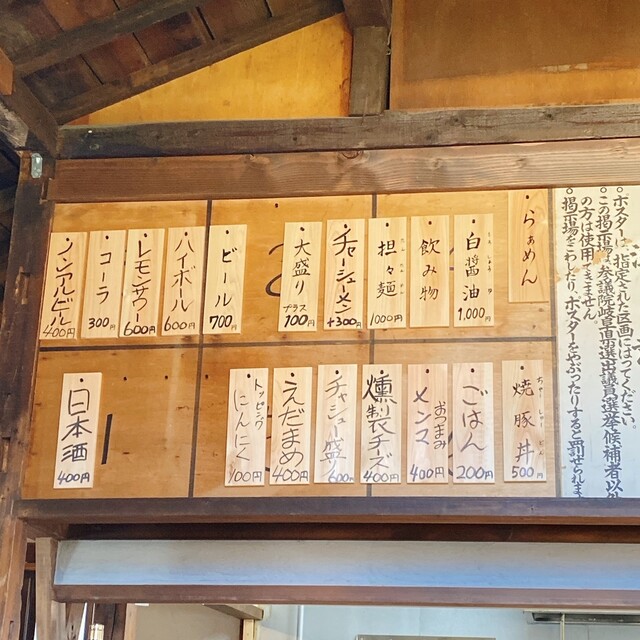 らぁめん
白醤油
しろしょうゆ
1,000円
飲み物
担々麺
たんたんめん
1000円
チャーシューメン
+300円
大盛り
プラス
100円
ビール
700円
ハイボール
600円
レモンサワー
600円
コーラ
300円
ノンアルビール
400円
焼豚丼
ちゃしゅーどん
500円
ごはん
200円
おつまみ
メンマ
400円
燻製チーズ
400円
チャーシュー盛り
600円
えだまめ
400円
トッピング
にんにく
100円
日本酒
400円
1
2
。ポスターは、指定された区画にはってください。
。この掲示場は、参議院岐阜県選出議員選挙候補者以外
の方は使用できません
。掲示場をこわしたり、ポスターをやぶったりすると罰せられま